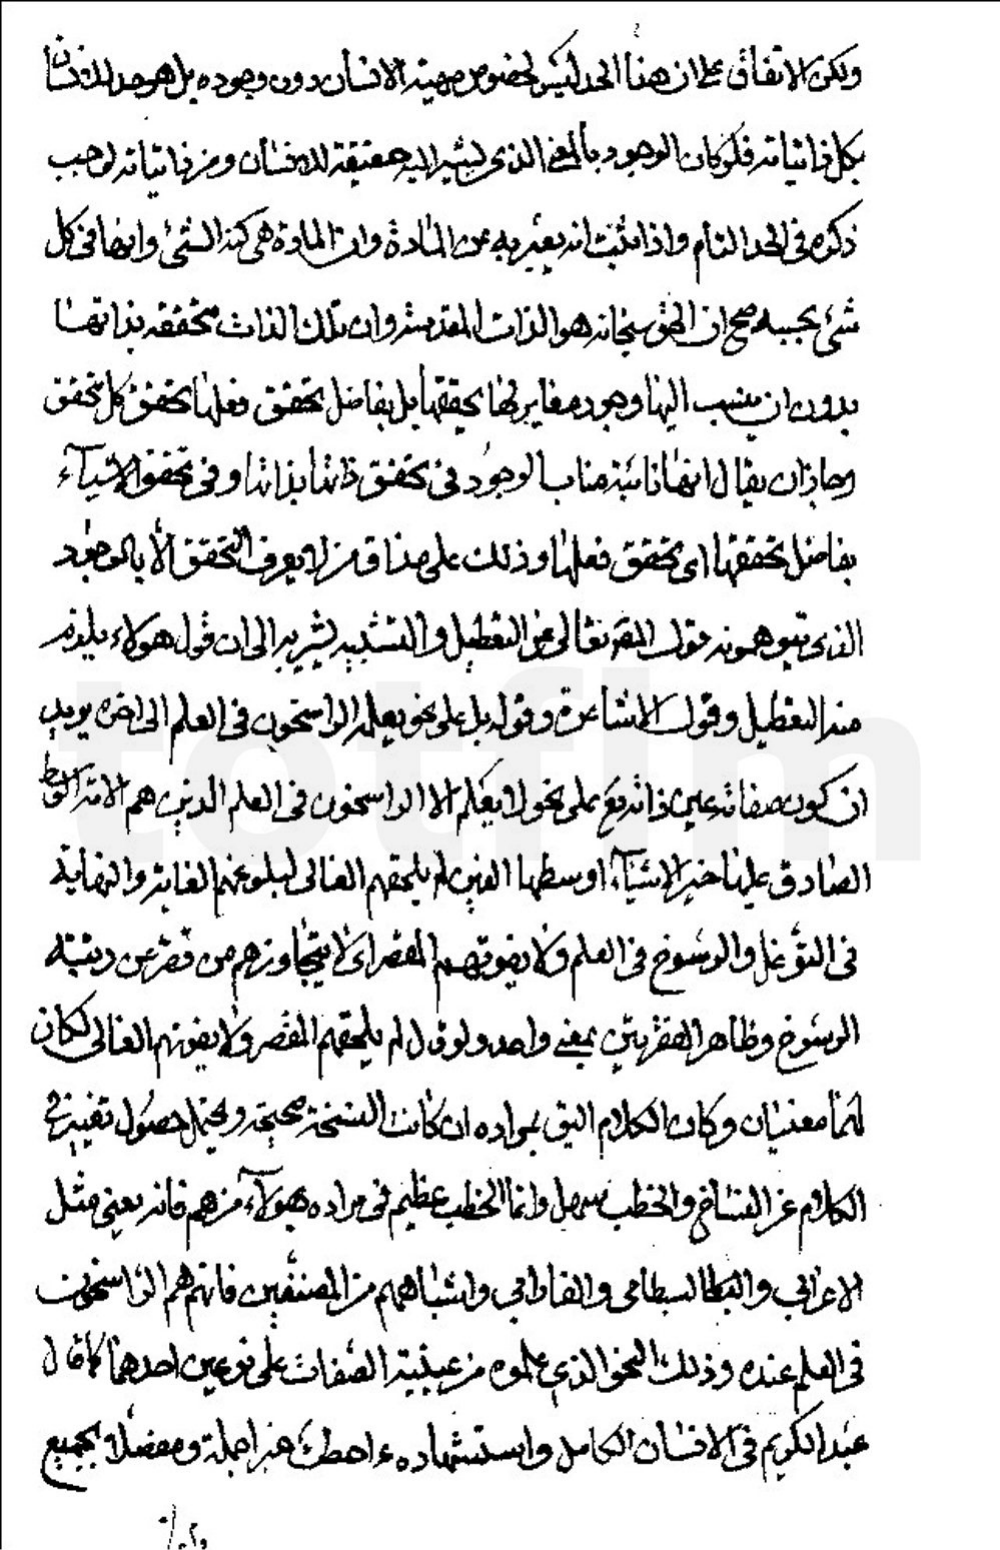 ولكن الاتفاق على ان هذا الحد ليس لخصوص مهية الانسان دون وجوده بل هو حد للانسان
بكل ذاتياته فلو كان الوجود بالمعنى الذى يشير اليه حقيقة للانسان ومن ذاتياته لوجب
ذكره فى الحد التام واذا ثبت انه يعبر به عن المادة وان المادة هى كنه الشئ وانها فى كل
شئ بحسبه صح ان الحق سبحانه هو الذات المقدسة وان تلك الذات متحققه بذاتها
بدون ان ينسب اليها وجود مغاير لها بحققها بل بفاضل تحقق فعلها تحقق كل متحقق
وجاز ان يقال انها نائبة مناب الوجود فى تحقق ذاتها بذاتها وفى تحقق الاشيآء
بفاضل تحققها اى تحقق فعلها وذلك على مذاق من لا يعرف التحقق الا بالوجود
الذى يتوهمونه قوله تعالى عن التعطيل والتشبيه يشير به الى ان قول هولاء يلزم
منه التعطيل وقول الاشاعرة وقوله بل على نحو يعلمه الراسخون فى العلم الى اخره يريد
ان كون صفاته عين ذاته تع على نحو لا يعلمه الا الراسخون فى العلم الذين هم الامة الوسط
الصادق عليها خير الاشيآء اوسطها الذين لم يلحقهم الغالى لبلوغهم الغاية والنهاية
فى التوغل والرسوخ فى العلم ولا يفوتهم المقصر اى لا يتجاوزهم من قصر عن رتبته
الرسوخ وظاهر الفقرتين بمعنى واحد ولو قال لم يلحقهم المقصر ولا يفوتهم الغالى لكان
لهما معنيان وكان الكلام اليق بمراده ان كانت النسخة صحيحة ويحتمل حصول تغيير فى
الكلام عن النساخ والخطب سهل وانما الخطب عظيم فى مراده بهولآء من هم فانه يعنى مثل
الاعرابي والبسطامى والفارابي واشباههم من المصنفين فانهم هم الراسخون
فى العلم عنده وذلك النحو الذى علموه من عينية الصفات على نوعين احدهما كما قال
عبد الكريم فى الانسان الكامل واستشهاده احطت خبرا جملة ومفصلا بجميع